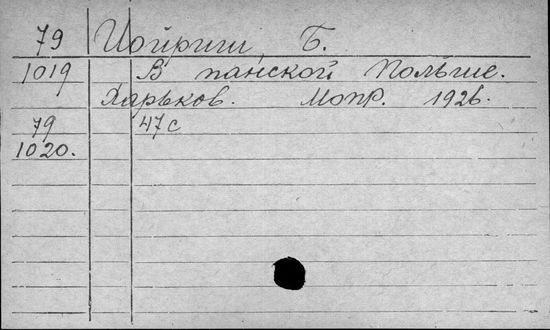 79 Иойриш, Б.
1019 В панской Польше.
Харьков. Мопр. 1926.
79 47 с
1020.